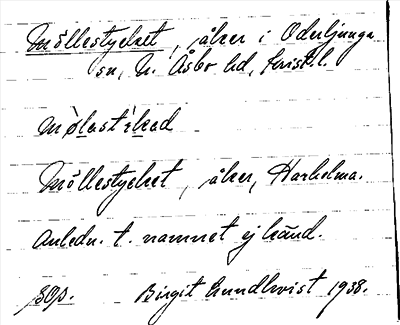 Möllestycket, åker i Oderljunga
sn, N. Åsbo hd, Krist. l.
Möllestycket, åker, Harhelma.
Anledn. t. namnet ej känd.
Birgit Lundkvist 1938.